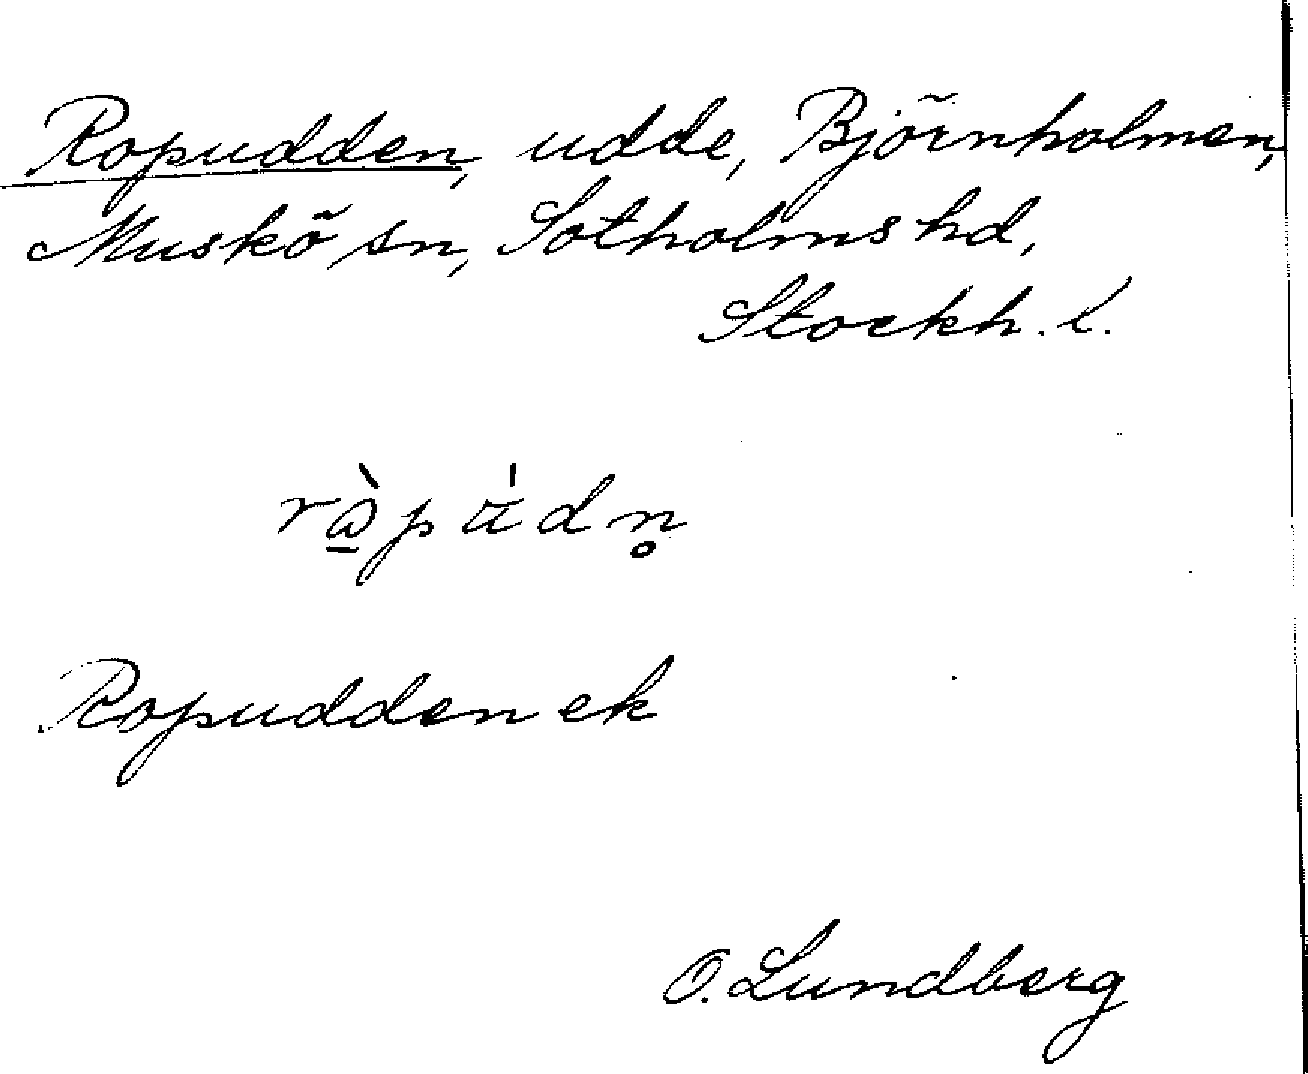 Ropudden, udde, Björnholmen,
Muskö sn, Sotholms hd,
Stockh. l.
Ropudden ek
O. Lundberg